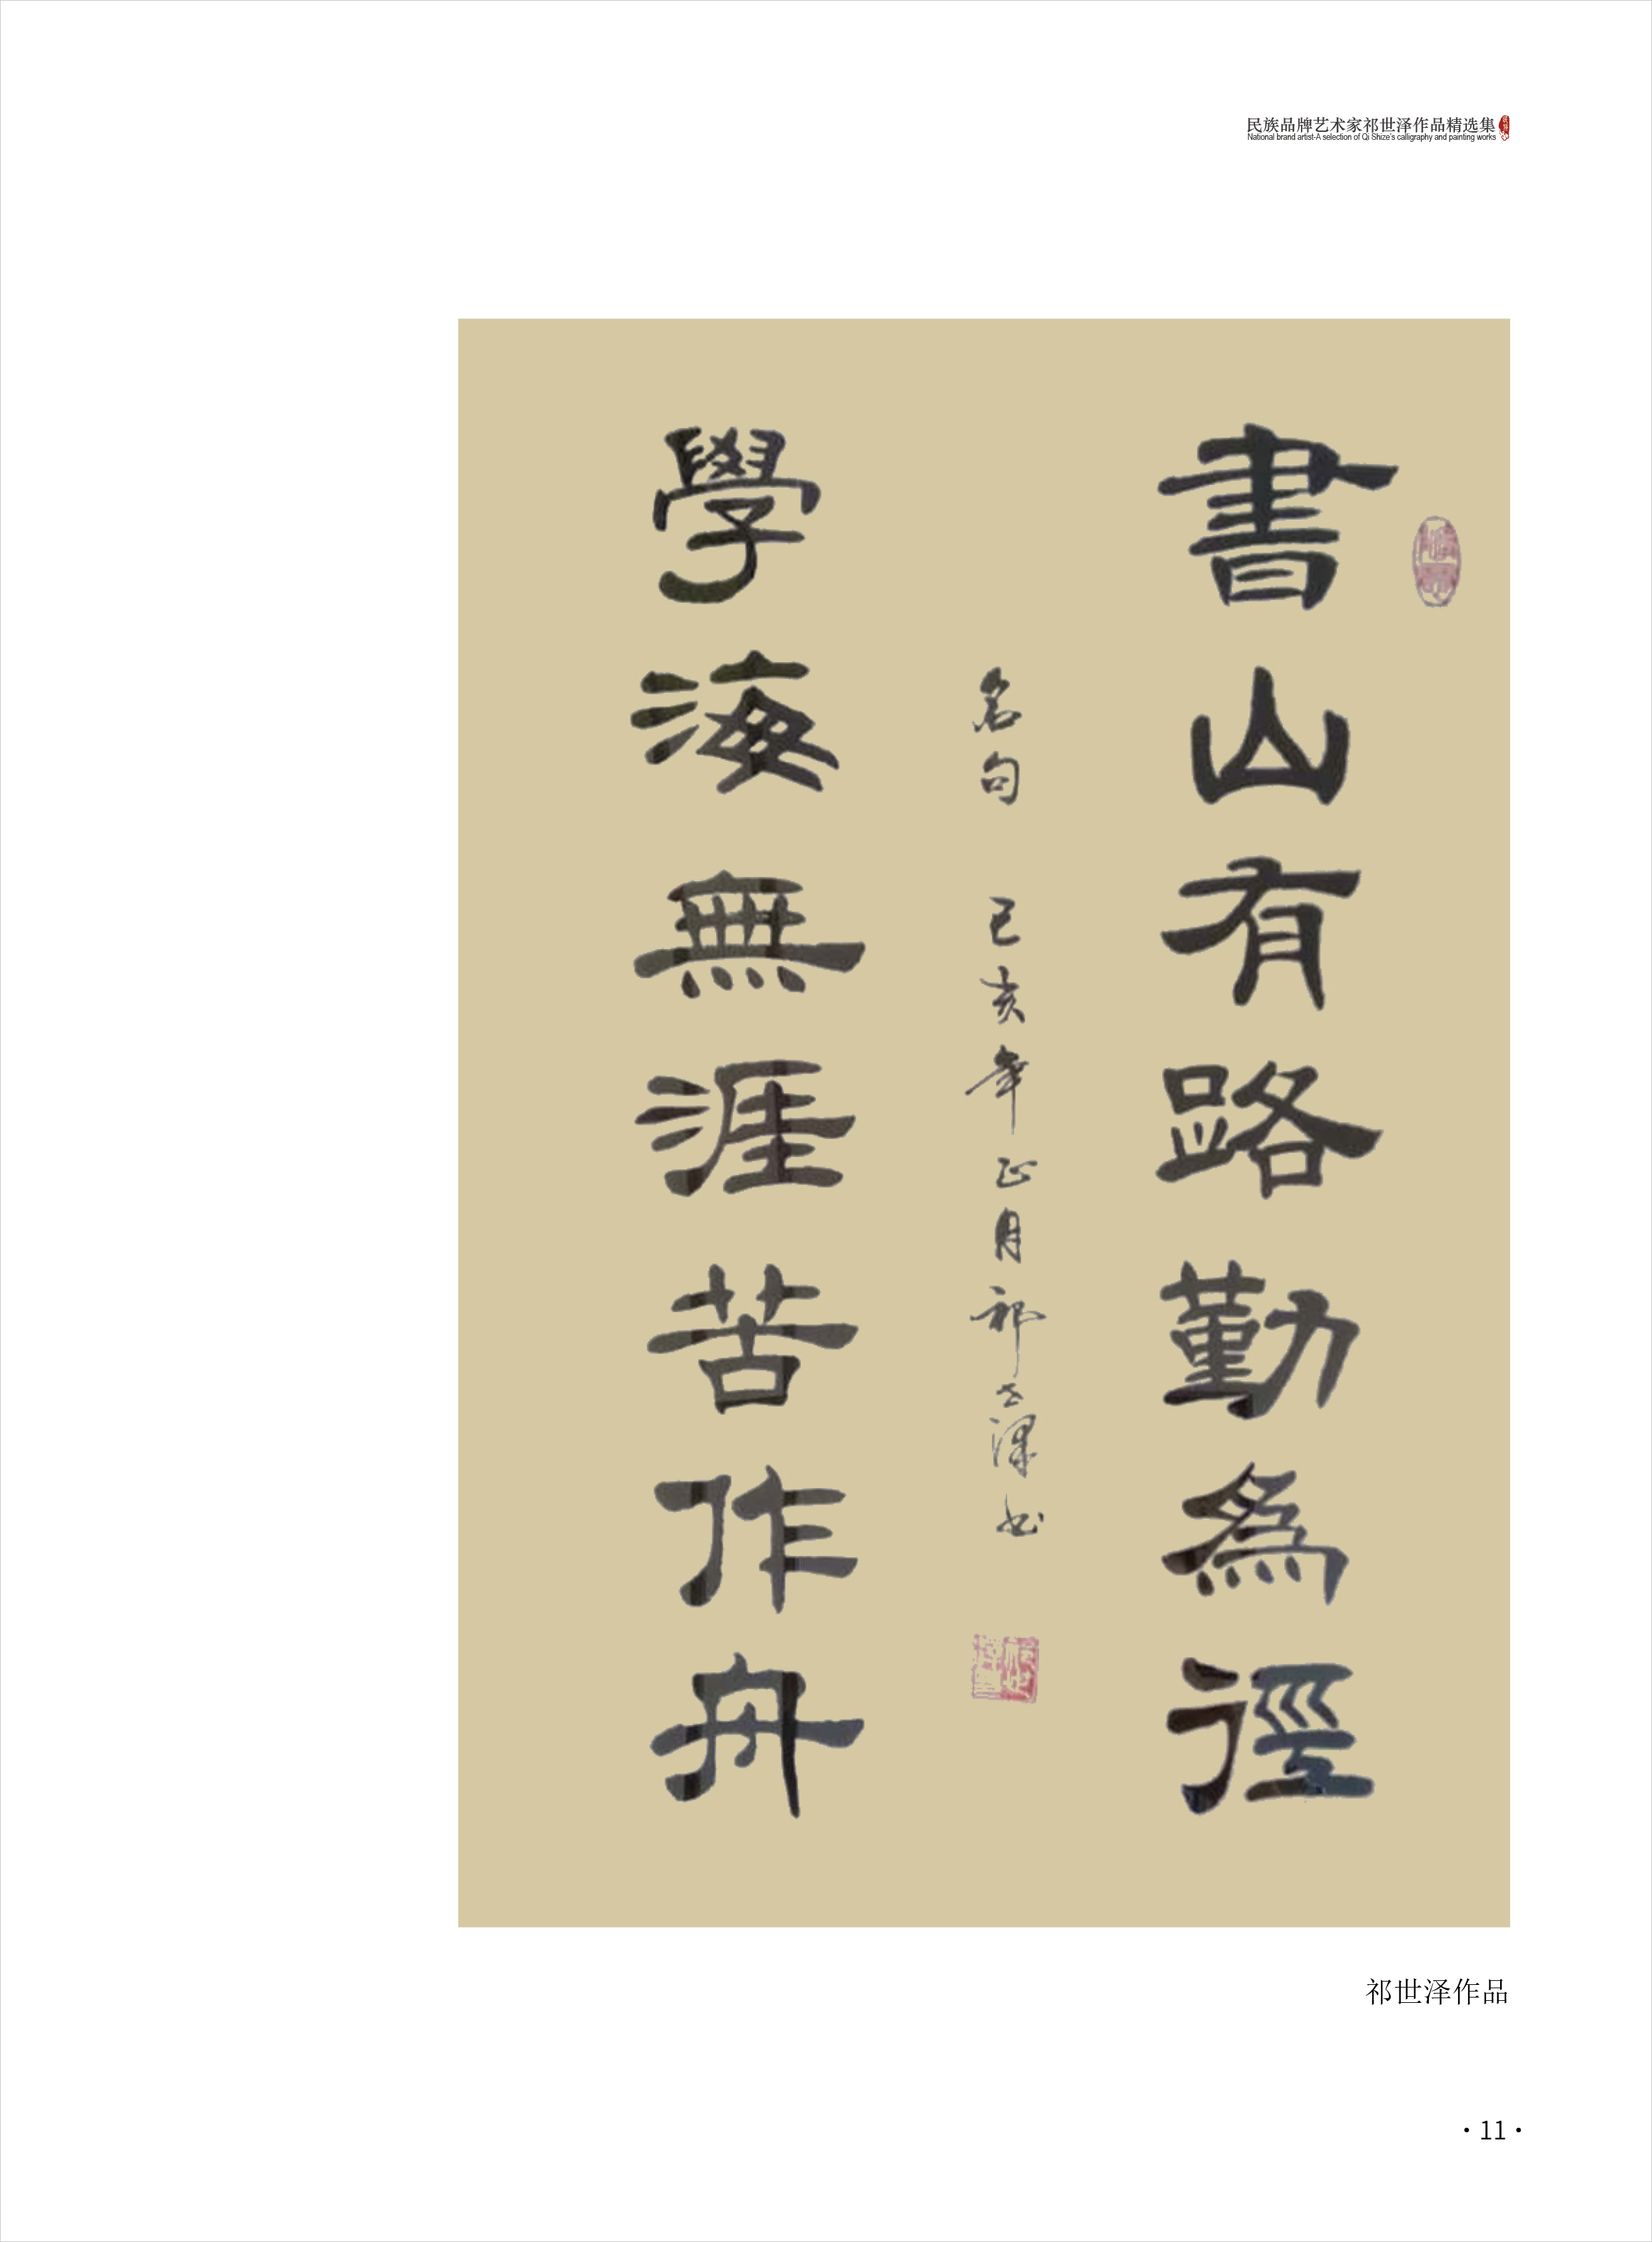 民族品牌艺术家祁世泽作品精选集
National brand artist-A selection of Qi Shize's calligraphy and painting works
書山有路勤為徑
名句 己亥年正月祁世澤书
學海無涯苦作舟
祁世泽作品
·11·